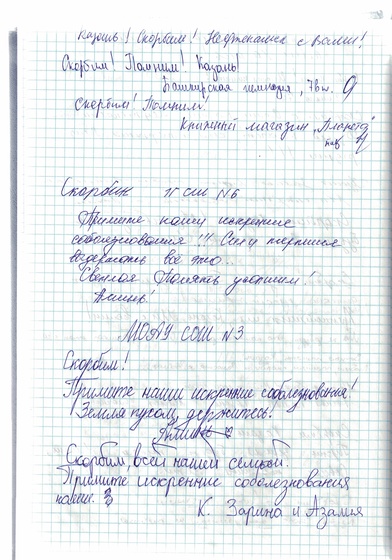 Казань! Скорбим! Нефтекамск с Вами!
Скорбим! Помним! Казань!
Башкирская гимназия, 7 в кл.
Скорбим! Помним!
Книжный магазин "Планета"
Скорбим СШ №6
Примите наши искренние
соболезнования!!! Силы терпения
выдержать всё это..
Светлая Память усопшим!
Аминь!
МОАУ СОШ №3
Скорбим!
Примите наши искренние соболезнования!
Земля пухом, держитесь!
Аминь
Скорбим, всей нашей семьёй.
Примите искренние соболезнования
наши.
К. Зарина и Азамат